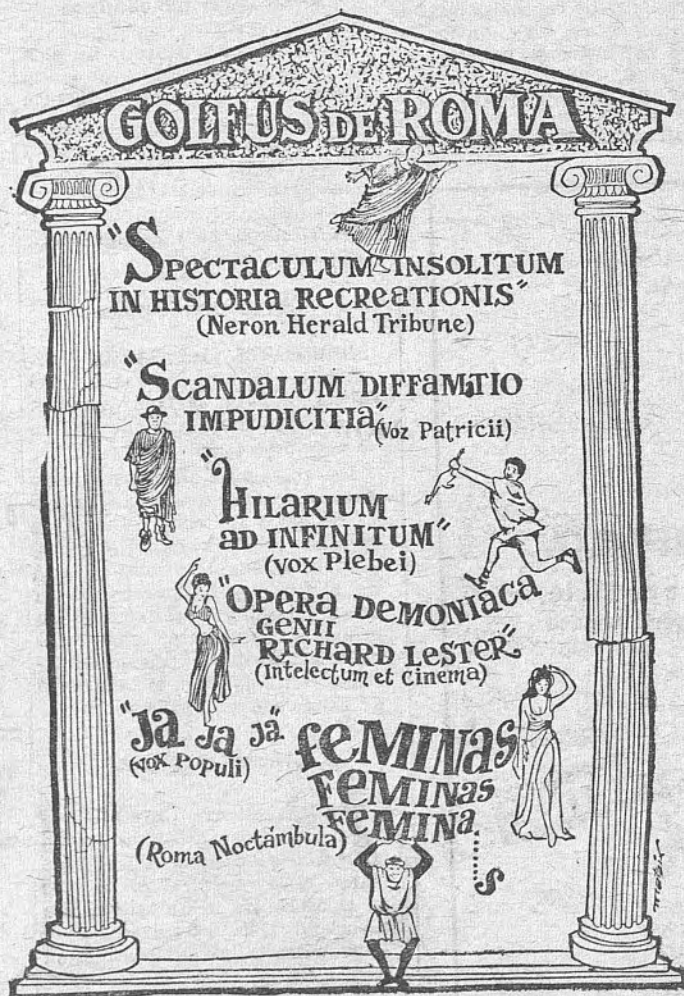 GOLFUS DE ROMA
"SPECTACULUM INSOLITUM
IN HISTORIA RECREATIONIS"
(Neron Herald Tribune)
"SCANDALUM DIFFAMATIO
IMPUDICITIA" (Voz Patricii)
"HILARIUM
AD INFINITUM"
(vox Plebei)
"OPERA DEMONIACA
GENII
RICHARD LESTER"
(Intelectum et Cinema)
"Ja Ja Ja"
(vox Populi)
FEMINAS
FEMINAS
FEMINA.....S
(Roma Noctámbula)